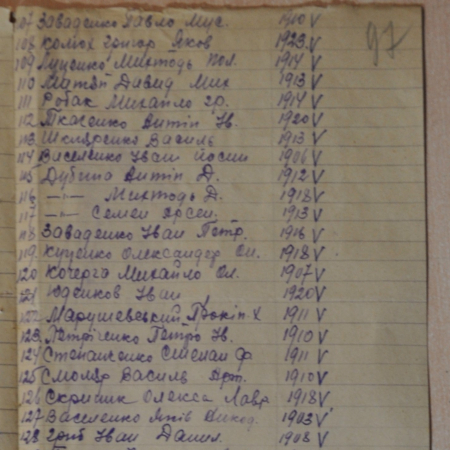 97
107 Заваденко Павло Мус. 1910 V
108 Комох Гонгор Яков 1923 V
109 Луценко Михтодь Пол. 1914 V
110 Матвій Давид Мих 1913 V
111 Робак Михайло Гр. 1914 V
112 Ткаченко Антін Ів. 1920 V
113 Шкляренко Василь 1913 V
114 Василенко Іван Йосип 1906 V
115 Дубина Антін Д. 1912 V
116 —»— Михтодь Д. 1918 V
117 —»— Семен Арсен. 1913 V
118 Заваденко Іван Петр. 1916 V
119 Куценко Олександер Ол. 1918 V
120 Кочерга Михайло Ол. 1907 V
121 Юдейков Іван 1920 V
122 Марушевський Прокіп Х 1911 V
123 Петріченко Петро Ів. 1910 V
124 Степаненко Степан Ф 1911 V
125 Смоляр Василь Арт. 1910 V
126 Скрипник Олекса Лавр 1918 V
127 Василенко Яків Викод. 1903 V
128 Гриб Іван Данил. 1908 V